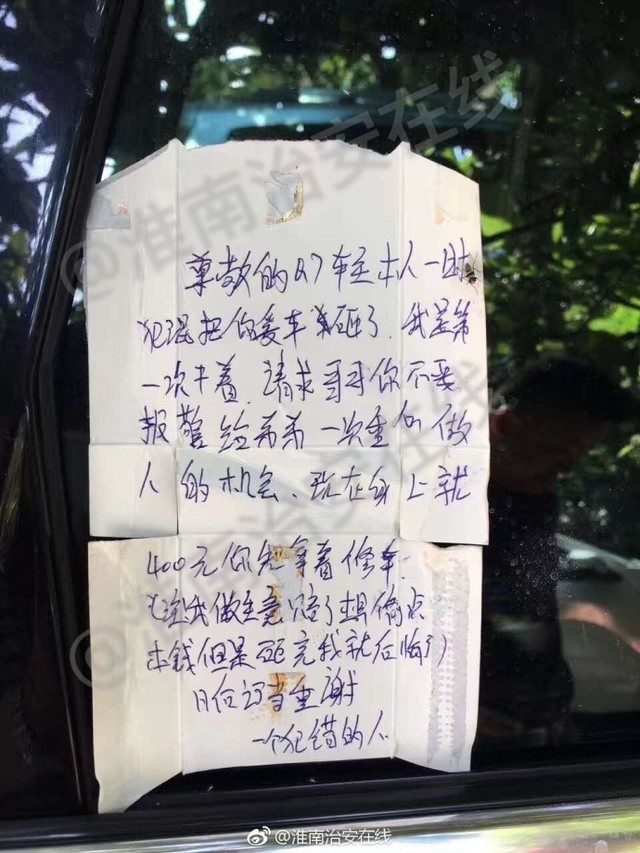 尊敬的Q7车主本人一时
犯混把你爱车砸了.我是第
一次干着.请求哥哥你不要
报警给弟弟一次重新做
人的机会、现在身上就
400元你先拿着修车.
(注我做生意赔了想偷点
本钱但是砸完我就后悔了)
日后定当重谢
一个犯错的人
@淮南治安在线
@淮南治安在线
@淮南治安在线
@淮南治安在线